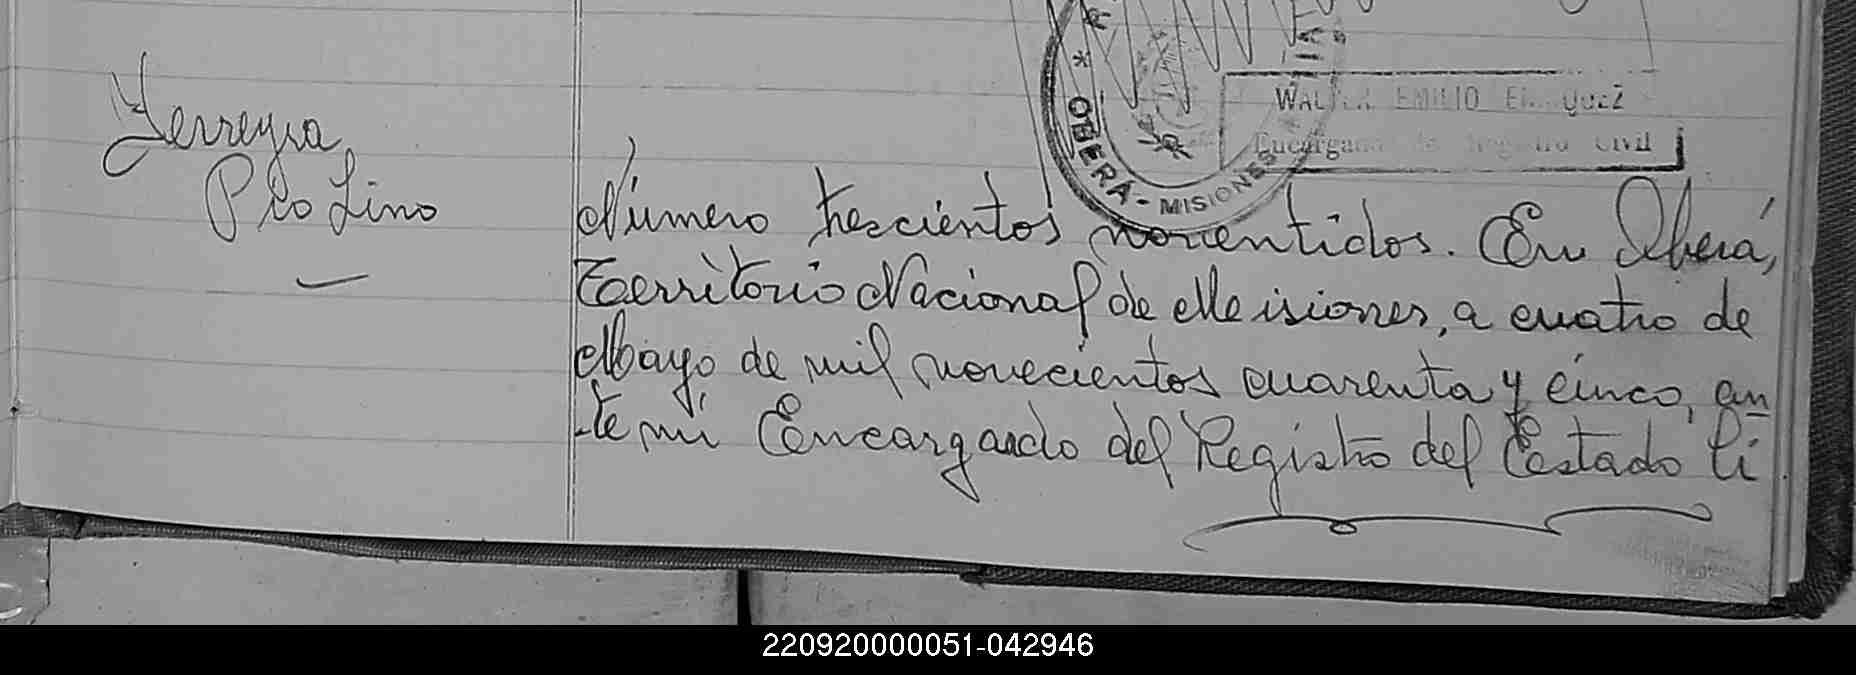 WALTER EMILIO
Encargado de Registro Civil
* OBERÁ - MISIONES
Ferreyra
Pio Lino
Número trescientos noventidos. En Oberá,
Territorio Nacional de Misiones, a cuatro de
Mayo de mil novecientos cuarenta y cinco, an
-te mi Encargado del Registro del Estado Ci
220920000051-042946